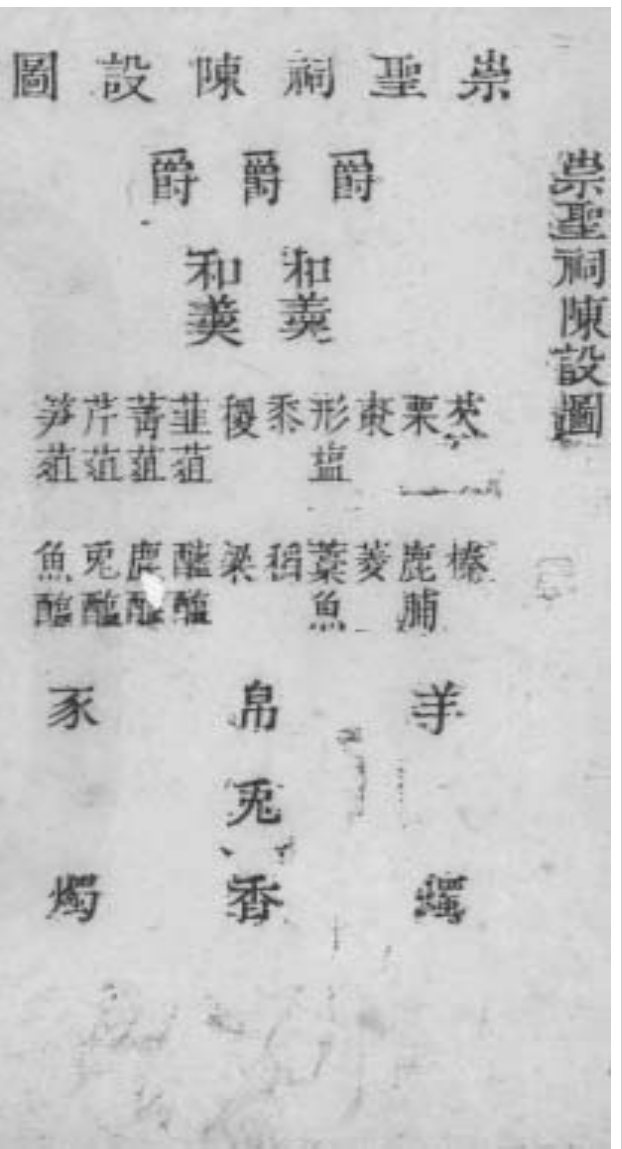 崇聖祠陳設圖
崇聖祠陳設圖
爵 爵 爵
和羹 和羹
芡 栗 棗 形塩 黍 稷 韮菹 菁菹 芹菹 笋菹
榛 鹿脯 菱 藁魚 稻 粱 醓醢 鹿醢 兎醢 魚醢
羊 帛 豕
兎
燭 香 燭